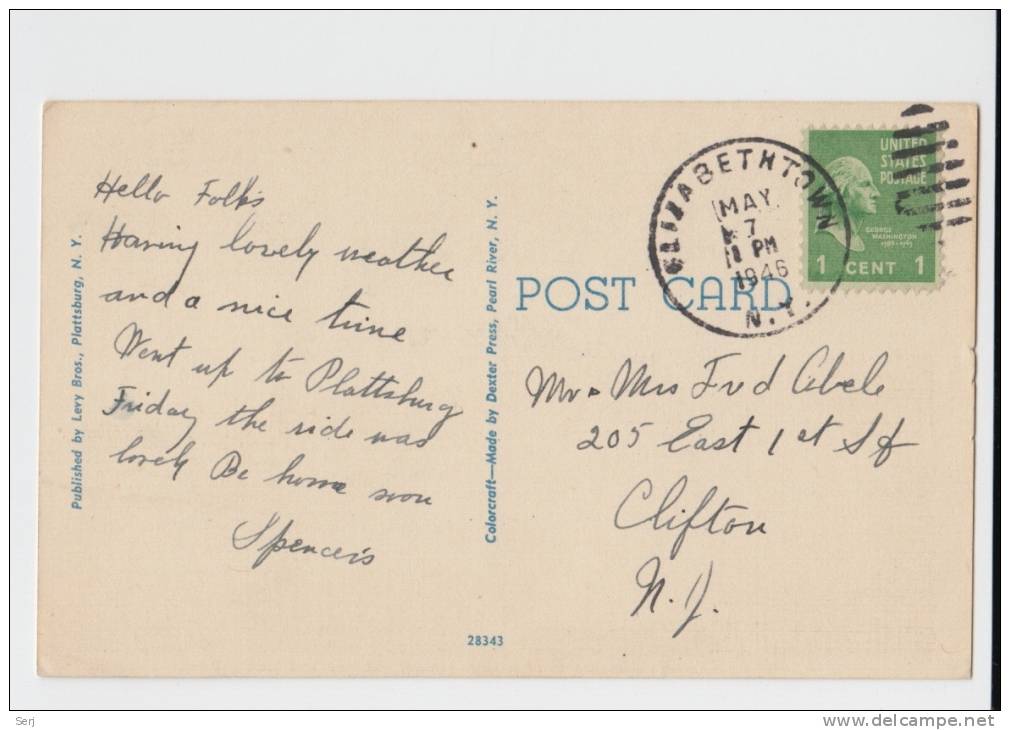 Hello Folks
Having lovely weather
and a nice time
Went up to Plattsburg
Friday the ride was
lovely Be home soon
Spencers
Published by Levy Bros., Plattsburg, N. Y.
Colorcraft—Made by Dexter Press, Pearl River, N. Y.
POST CARD
ELIZABETHTOWN
MAY
7
PM
1946
N.Y.
UNITED
STATES
POSTAGE
GEORGE
WASHINGTON
1 CENT 1
Mr & Mrs Fred Abele
205 East 1st St
Clifton
N. J.
28343
Serj
www.delcampe.net